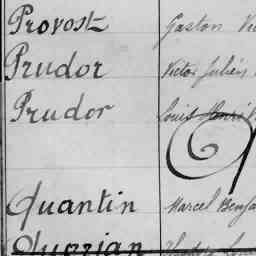 Provost Gaston
Prudor Victor Julien
Prudor Louis Henri
Quantin Marcel
Querrian